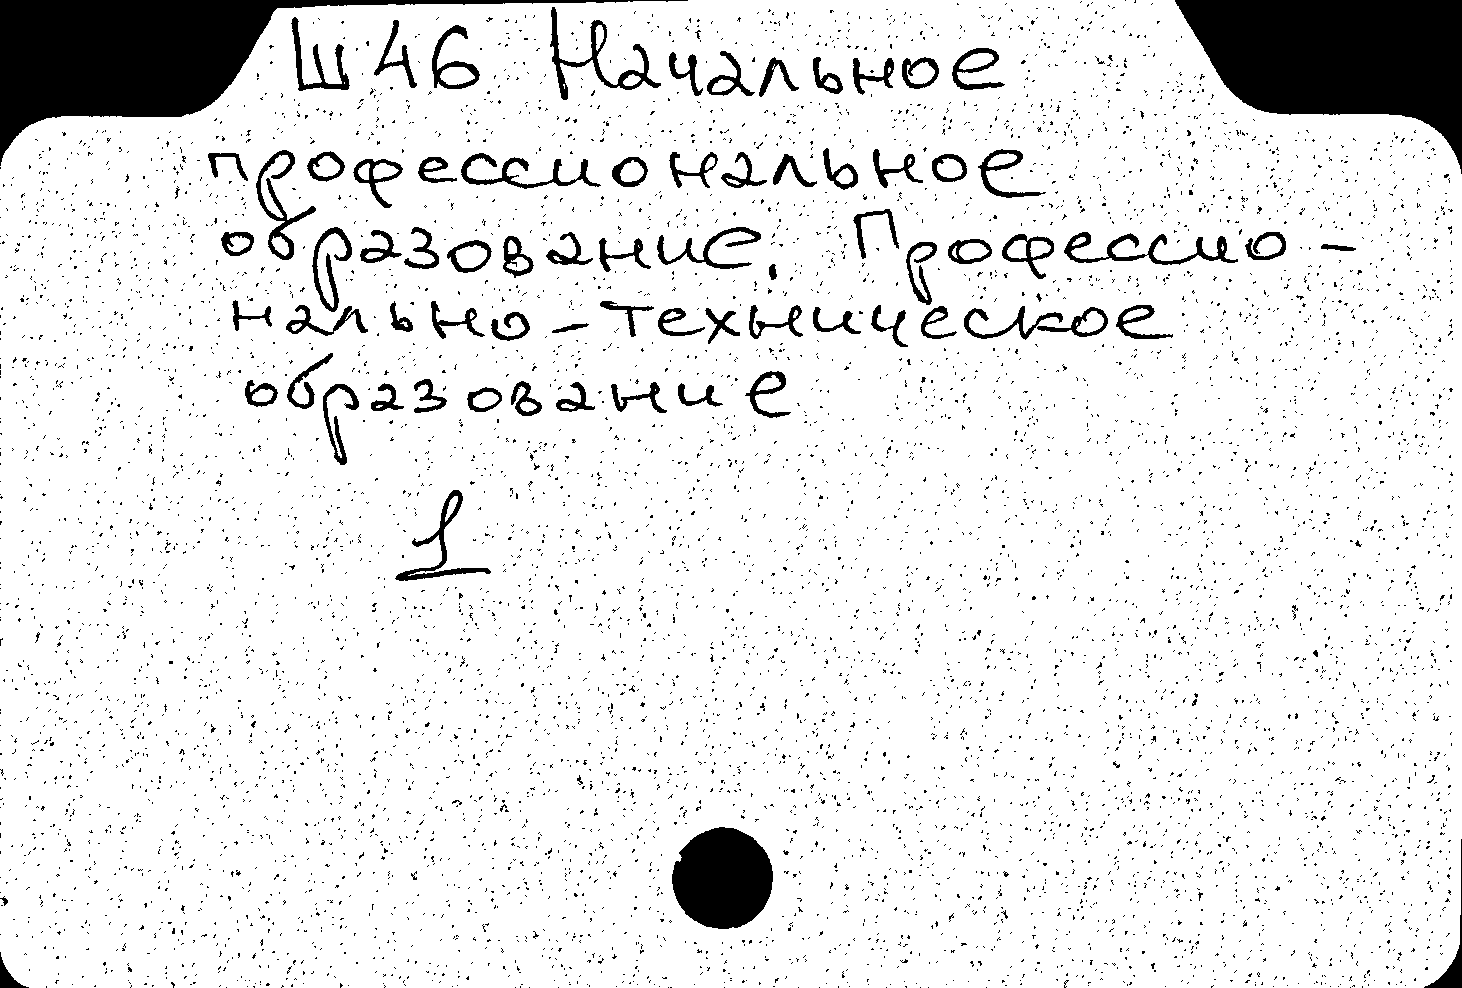 Ш46 Начальное
профессиональное
образование. Профессио-
нально-техническое
образование
1